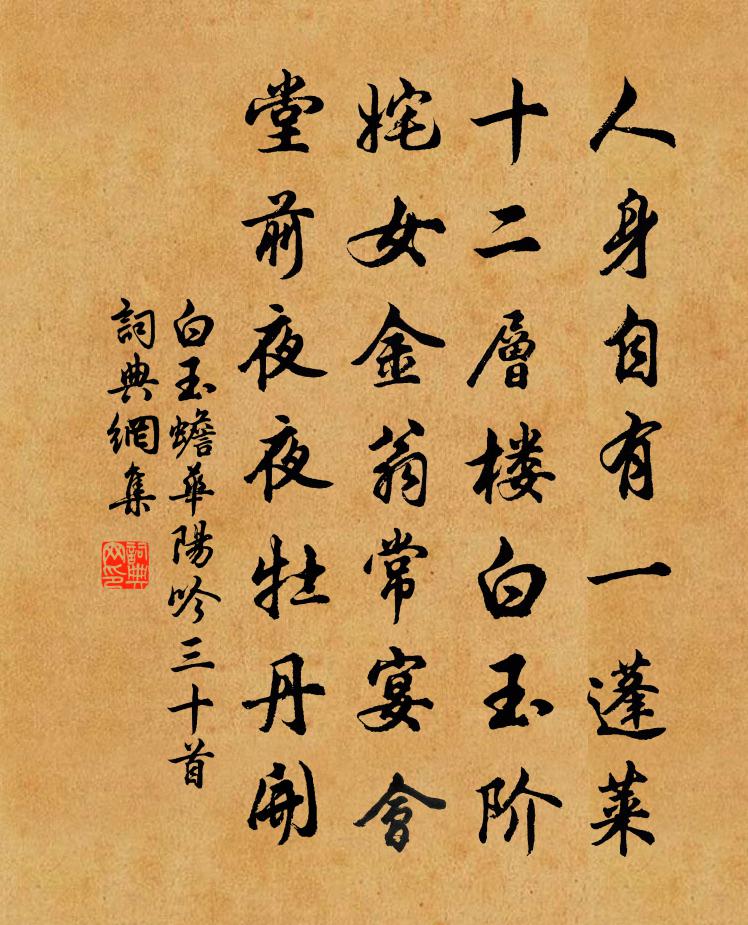 人身自有一蓬莱
十二層楼白玉阶
姹女金翁常宴會
堂前夜夜牡丹開
白玉蟾華陽吟三十首
詞典網集
詞典网印